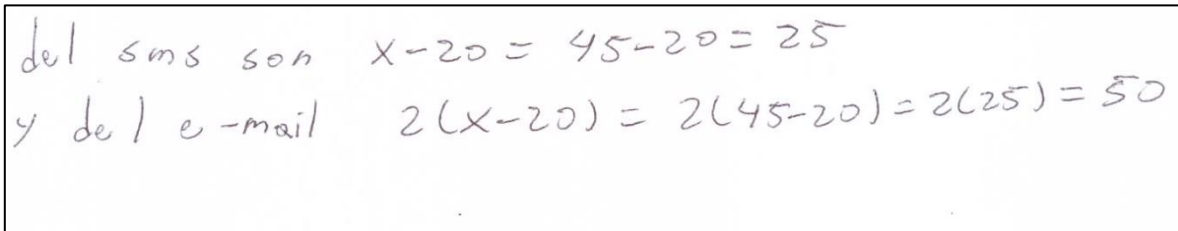 del sms son x-20 = 45-20 = 25
y del e-mail 2(x-20) = 2(45-20) = 2(25) = 50